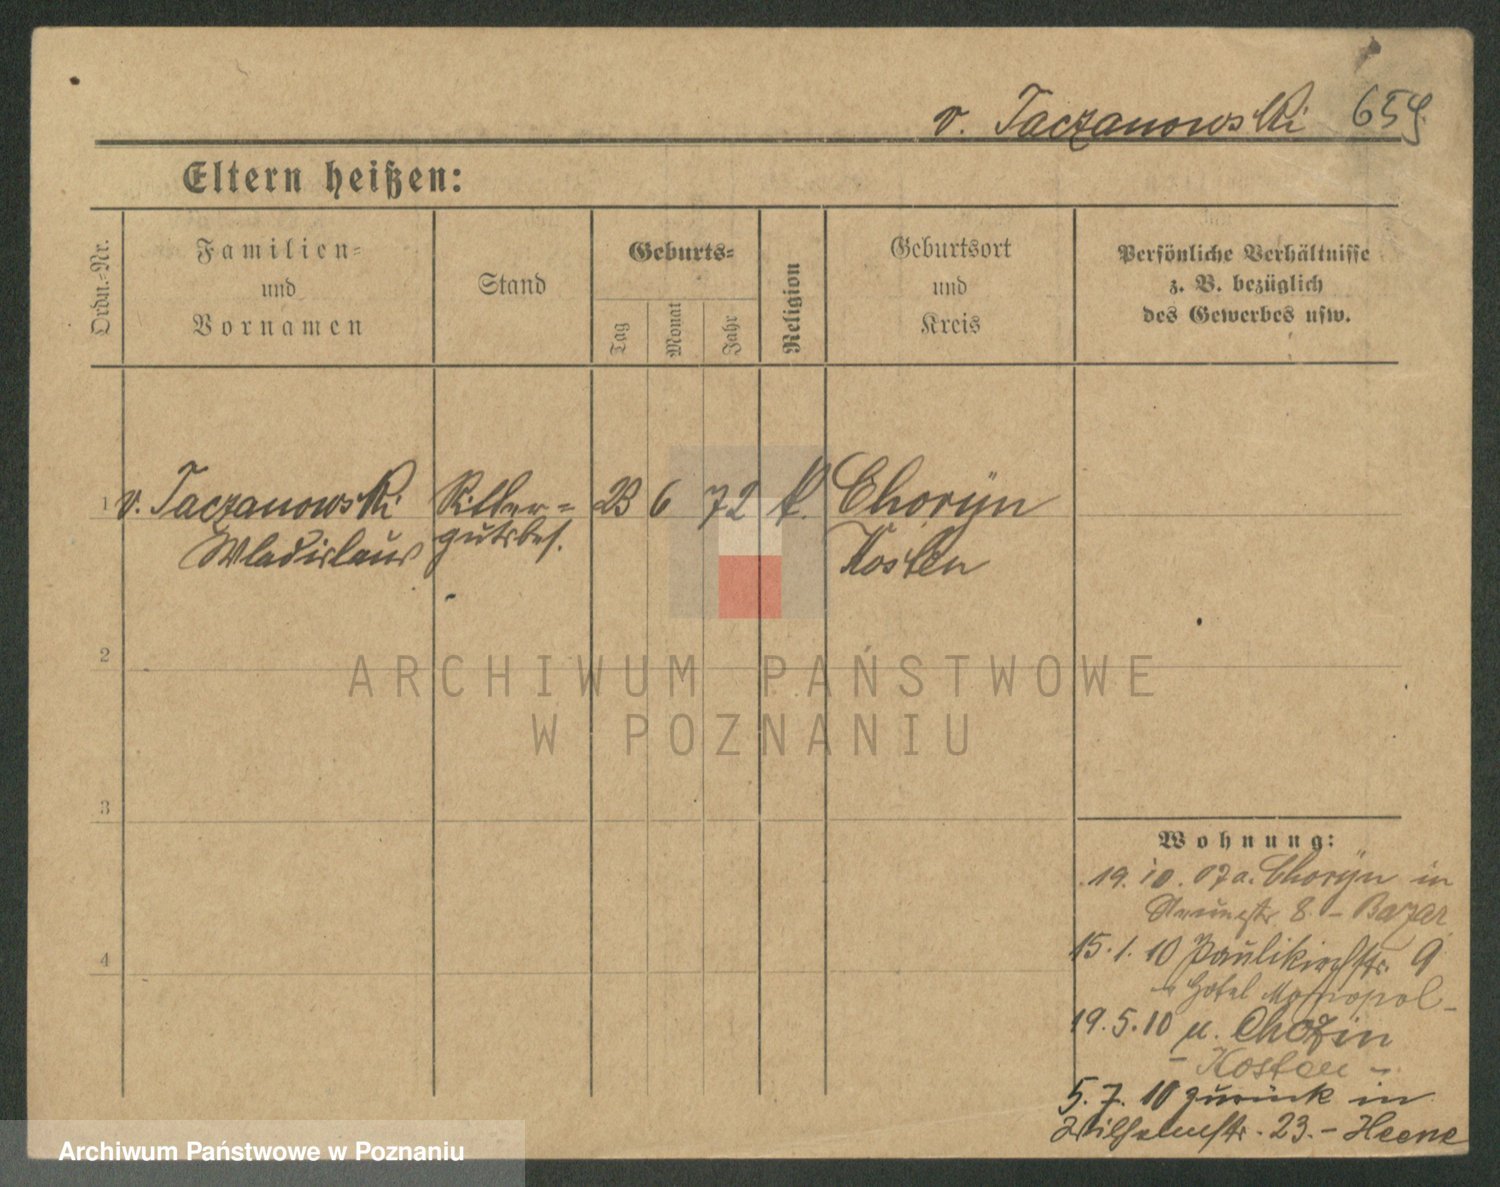 v. Taczanowski 659.
Eltern heißen:
Ordn.-Nr.
Familien-
und
Vornamen
Stand
Geburts-
Tag
Monat
Jahr
Religion
Geburtsort
und
Kreis
Persönliche Verhältnisse
z. B. bezüglich
des Gewerbes usw.
1 v. Taczanowski Ritter- 23 6 72 k. Choryn
Wladislaus gutsbes. Kosten
2
ARCHIWUM PAŃSTWOWE
W POZNANIU
3
Wohnung:
19. 10. 07 a. Choryn in
8. - Bazar
15. 1. 10 Paulikirchstr. 9
- Hotel Monopol -
19. 5. 10 n. Choryn
- Kosten -
4
5. 7. 10 zurück in
Wilhelmstr. 23. -
Archiwum Państwowe w Poznaniu